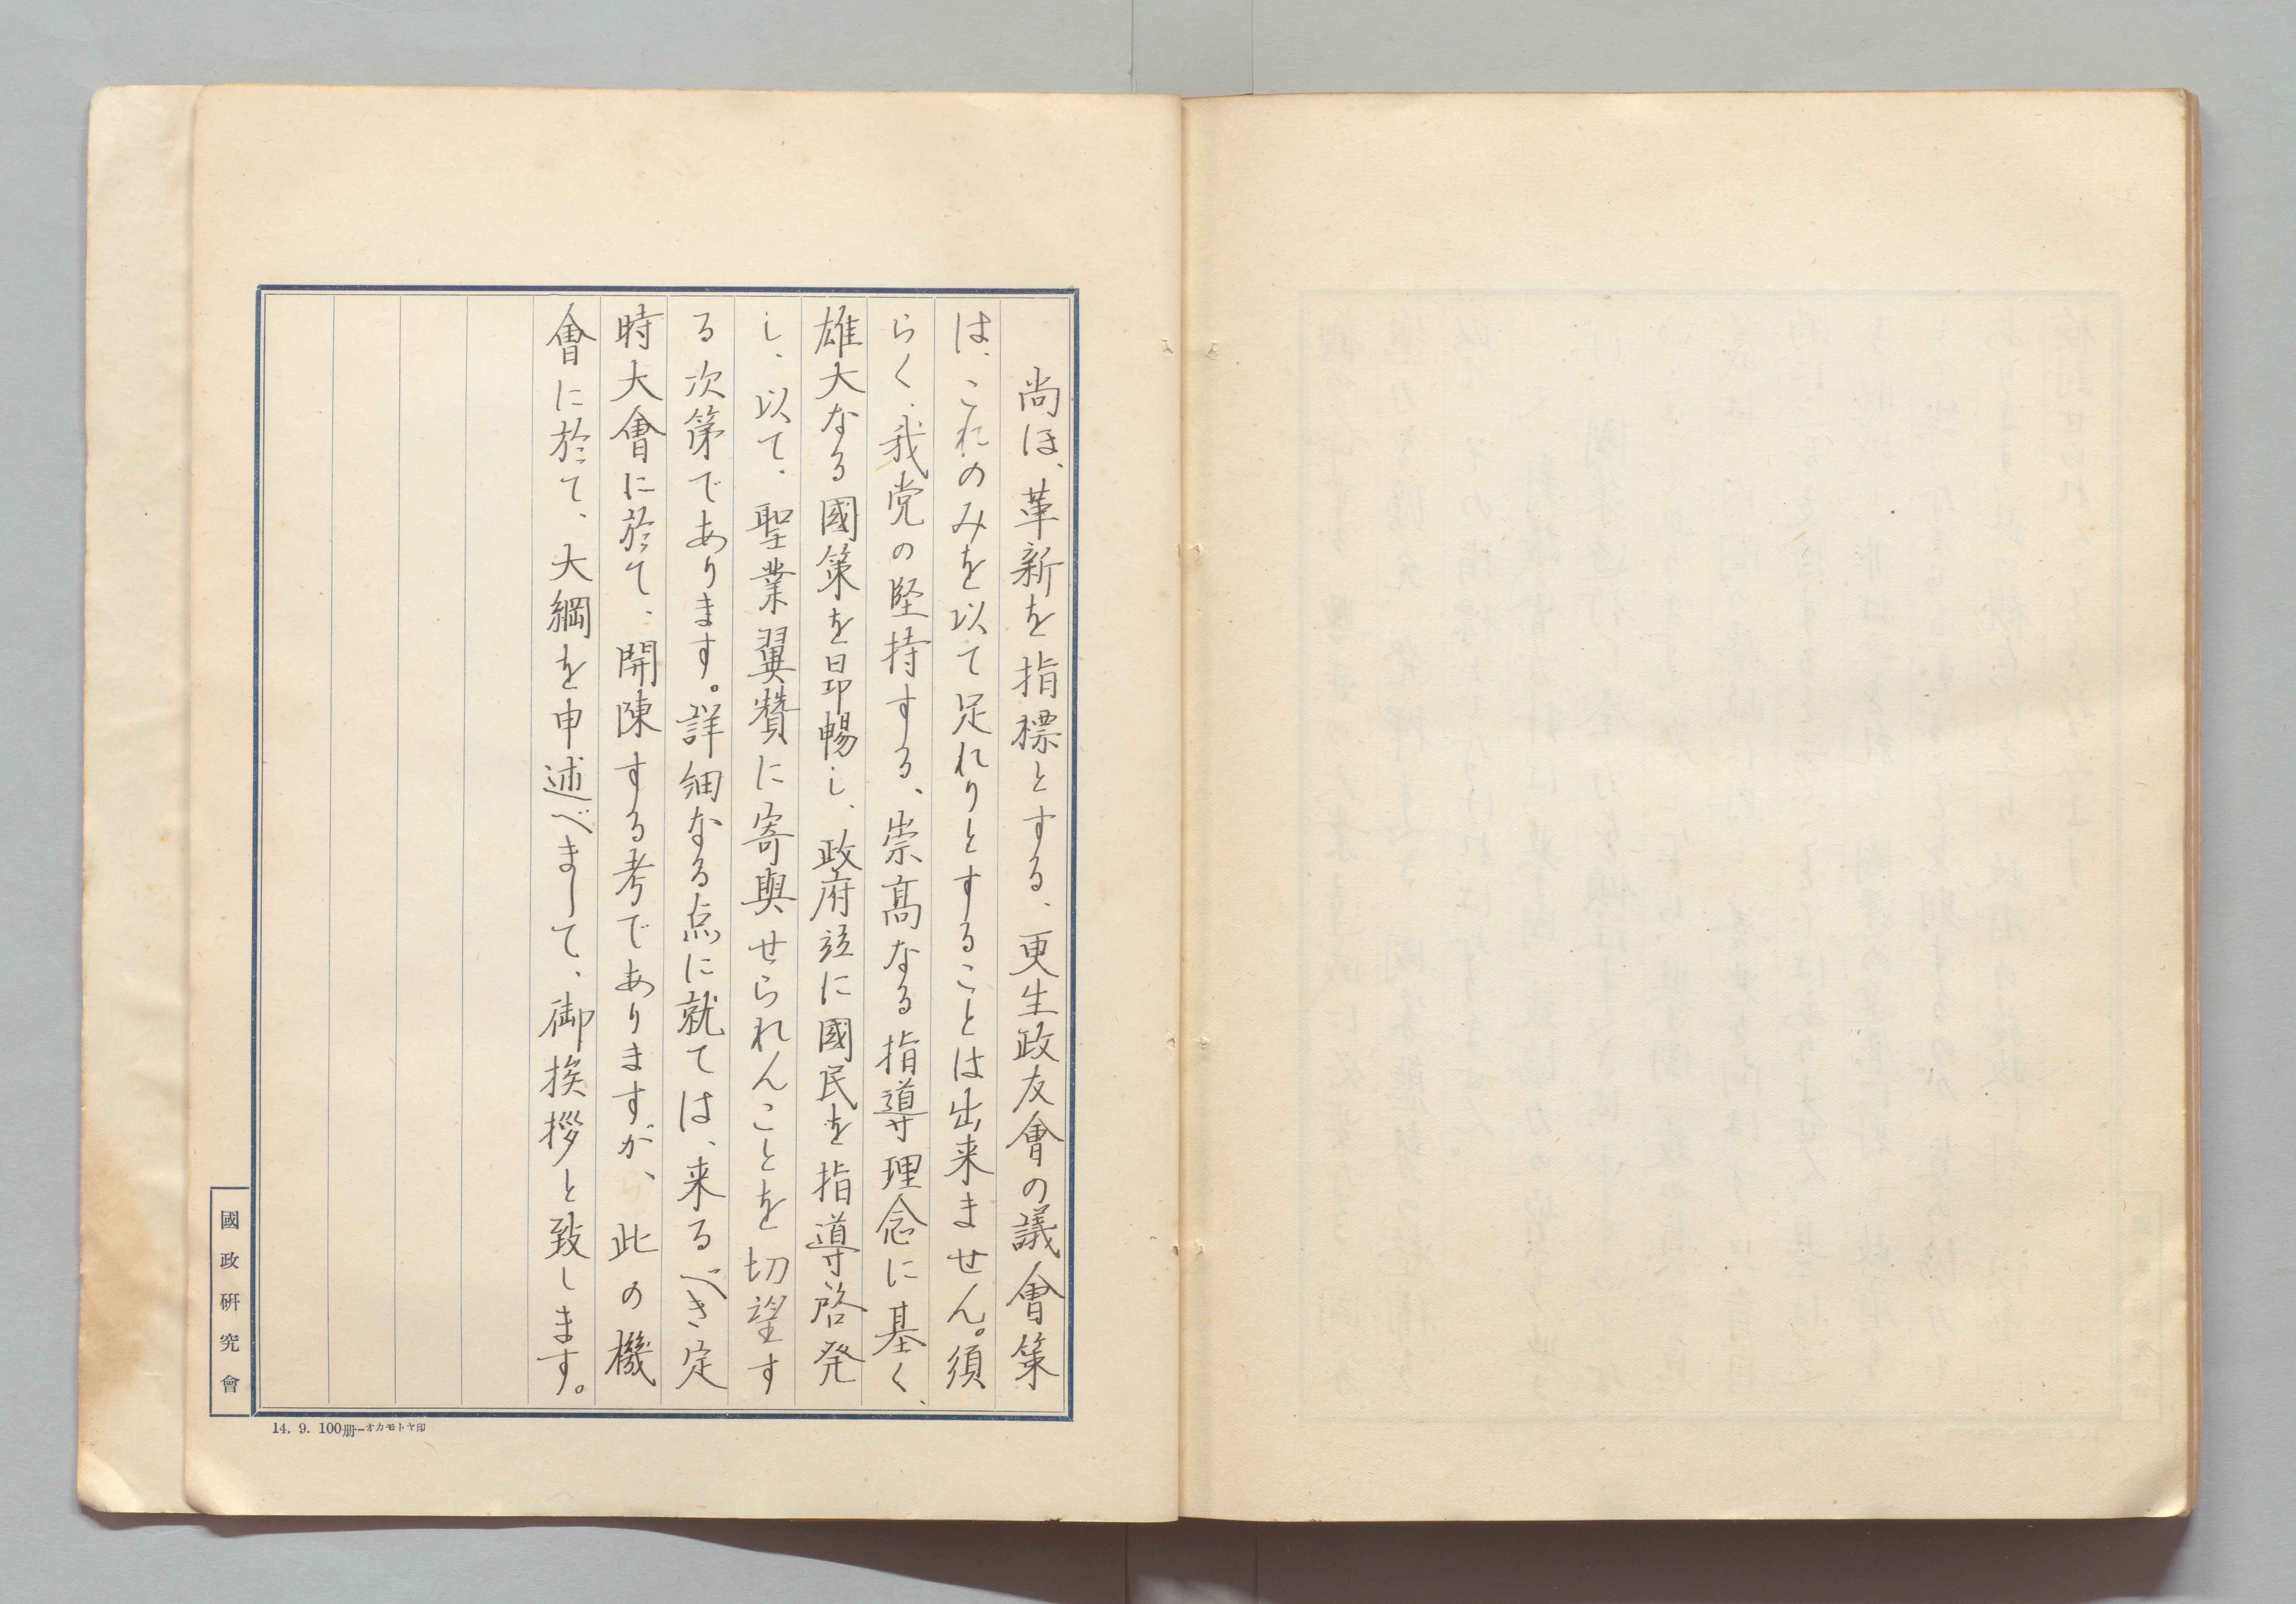 尚ほ、革新を指標とする、更生政友會の議會策
は、これのみを以て足れりとすることは出来ません。須
らく、我党の堅持する、崇高なる指導理念に基く、
雄大なる國策を昂暢し、政府竝に國民を指導啓発
し、以て、聖業翼賛に寄與せられんことを切望す
る次第であります。詳細なる点に就ては、来るべき定
時大會に於て、開陳する考でありますが、此の機
會に於て、大綱を申述べまして、御挨拶と致します。
國政研究會
14. 9. 100册—オカモトヤ印